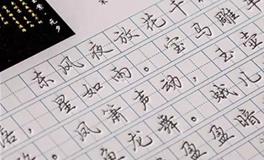 东风夜放花千
星如雨。宝马雕
凤箫声动，玉壶
龙舞。蛾儿
盈盈暗